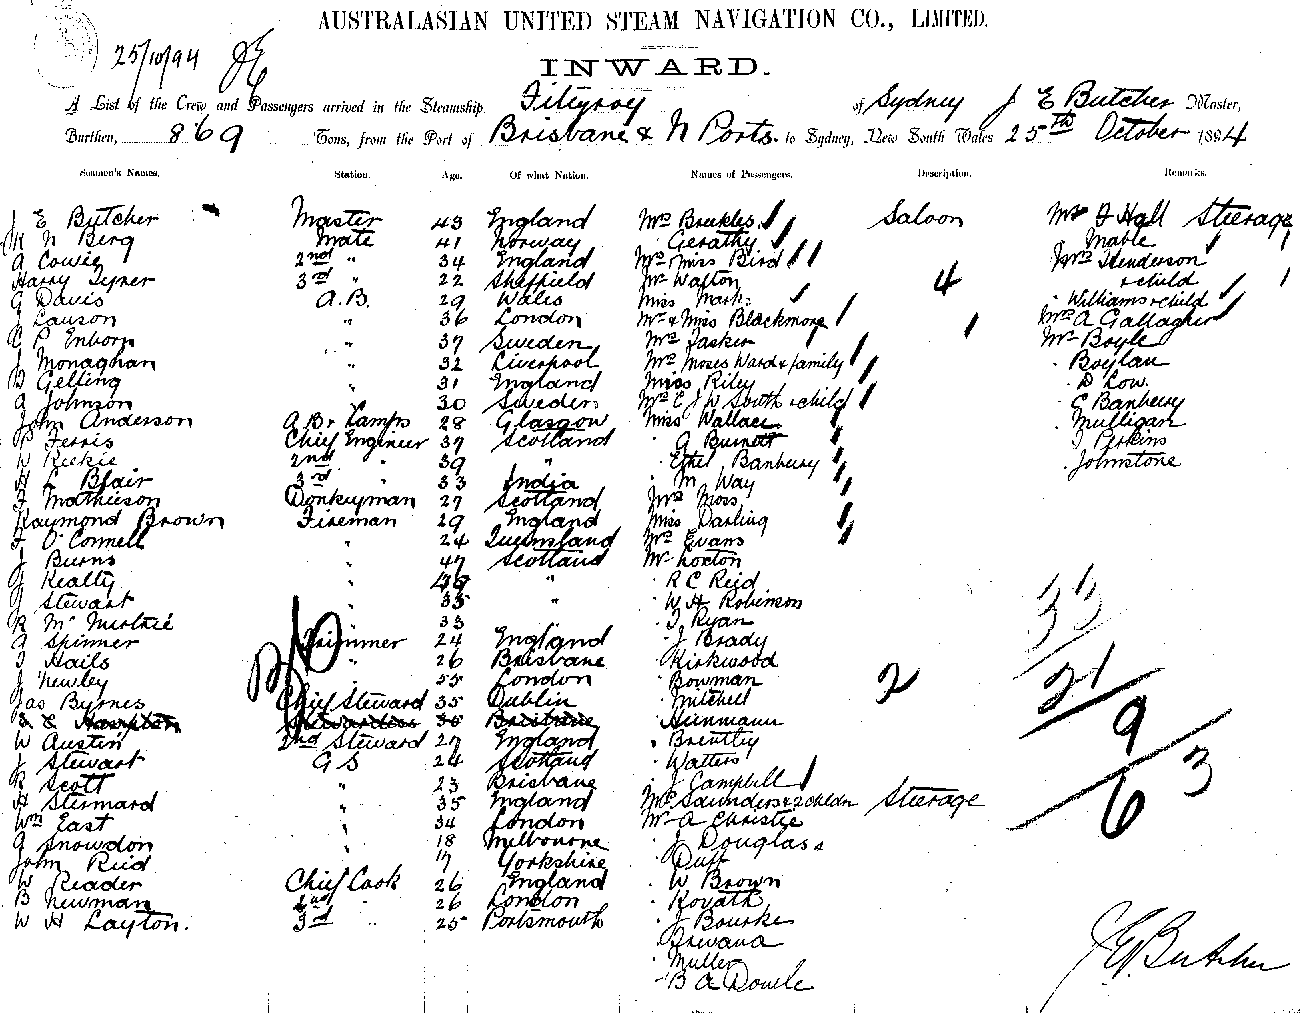 AUSTRALASIAN UNITED STEAM NAVIGATION CO., LIMITED.
25/10/94 JE
INWARD.
A List of the Crew and Passengers arrived in the Steamship Fitzroy of Sydney J E Butcher Master,
Burthen, 869 Tons, from the Port of Brisbane & N Ports to Sydney, New South Wales 25th October 1894
Seamen's Names. Station. Age. Of what Nation. Names of Passengers. Description. Remarks.
J E Butcher Master 43 England Mrs Breckles Saloon Mr J Hall Steerage
N Berg Mate 41 Norway Gerathy Mable
A Cowie 2nd " 34 England Mrs Miss Bird Mrs Henderson
Harry Tyrer 3rd " 22 Sheffield Mr Walton 4 & child
G Davis A.B. 29 Wales Miss Mark Williams & child
J Lawson " 36 London Mr & Miss Blackmore Mrs A Gallagher
C P Enborn " 37 Sweden Mrs Tasker Mr Boyle
J Monaghan " 32 Liverpool Mrs Moses Ward & family Boylan
Gelling " 31 England Miss Riley D Low
A Johnson " 30 Sweden Mrs E J W South & child C Banbury
John Anderson A.B. & Lamps 28 Glasgow Miss Wallace Mulligan
P Ferris Chief Engineer 37 Scotland G Burnett J Perkins
W Rickie 2nd " 39 " Ethel Banbury Johnstone
L Blair 3rd " 33 India M Way
J Mathieson Donkeyman 27 Scotland Mrs Moss
Raymond Brown Fireman 29 England Miss Darling
J O'Connell " 24 Queensland Mrs Evans
J Burns " 47 Scotland Mr Loxton
J Kealty " " R C Reid
J Stewart " 35 " W H Robinson
R Mc " 33 J Ryan
A Spinner Trimmer 24 England J Brady
J Hails " 26 Brisbane Kirkwood
J Newley 55 London Bowman 2
Jas Byrnes Chief Steward 35 Dublin Mitchell
Stewardess 30 Brisbane Heinmann
W Austin 2nd Steward 27 England Brentley
J Stewart G S 24 Scotland Watters
R Scott " 23 Brisbane J Campbell
H Stennard " 35 England Mrs Saunders & 2 chldn Steerage
Wm East " 34 London Mr A Christie
G Snowdon " 18 Melbourne J Douglass
John Reid 17 Yorkshire Duff
W Reader Chief Cook 26 England W Brown
B Newman 2nd " 26 London Kovath
W H Layton. 3rd " 25 Portsmouth J Bourke
Muller
B A Dowle
33
21
9
6 3
J E Butcher